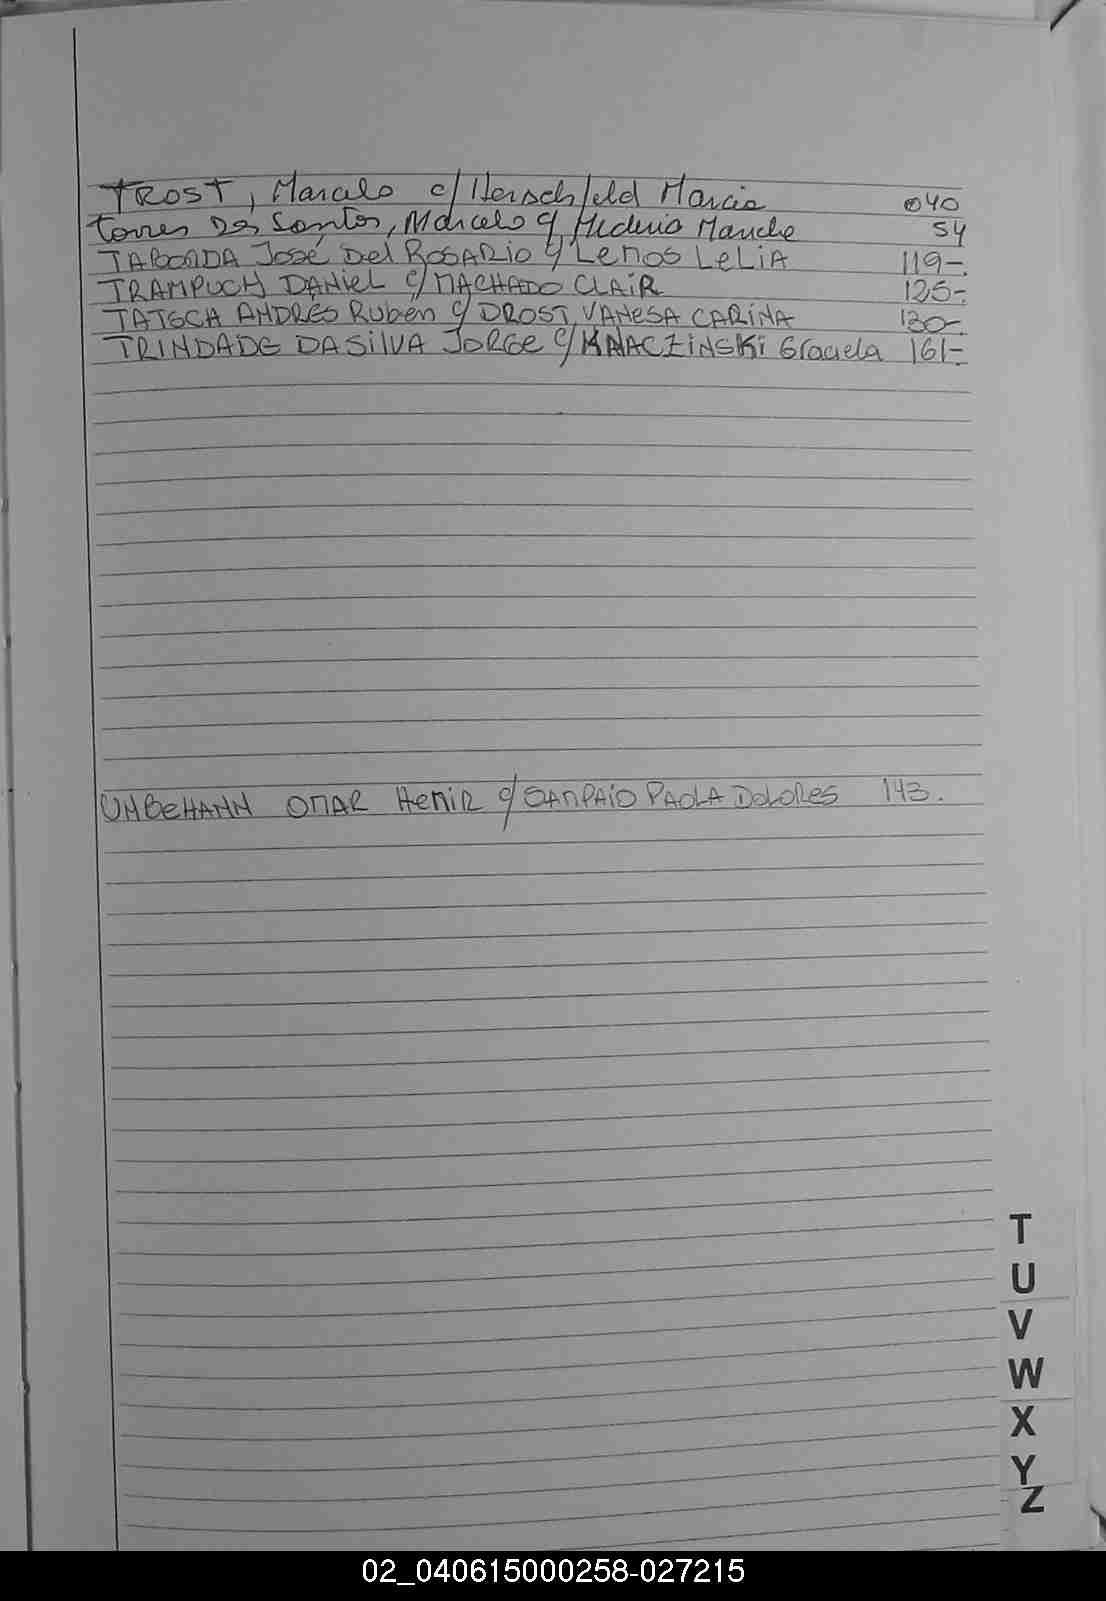 TROST, Marcelo c/ Herschfeld Marcia 040
Torres Dos Santos, Marcelo c/ 54
TABOADA José Del ROSARIO c/ LEMOS LELIA 119-
TRAMPUCH DANIEL c/ MACHADO CLAIR 125-
TATSCH ANDRES Rubén c/ DROST VANESA CARINA 130-
TRINDADE DA SILVA JORGE c/ KNACZINSKI Graciela 161-
UMBEHANN OMAR HEMIR c/ SAMPAIO PAOLA DOLORES 143.
T
U
V
W
X
Y
Z
02_040615000258-027215